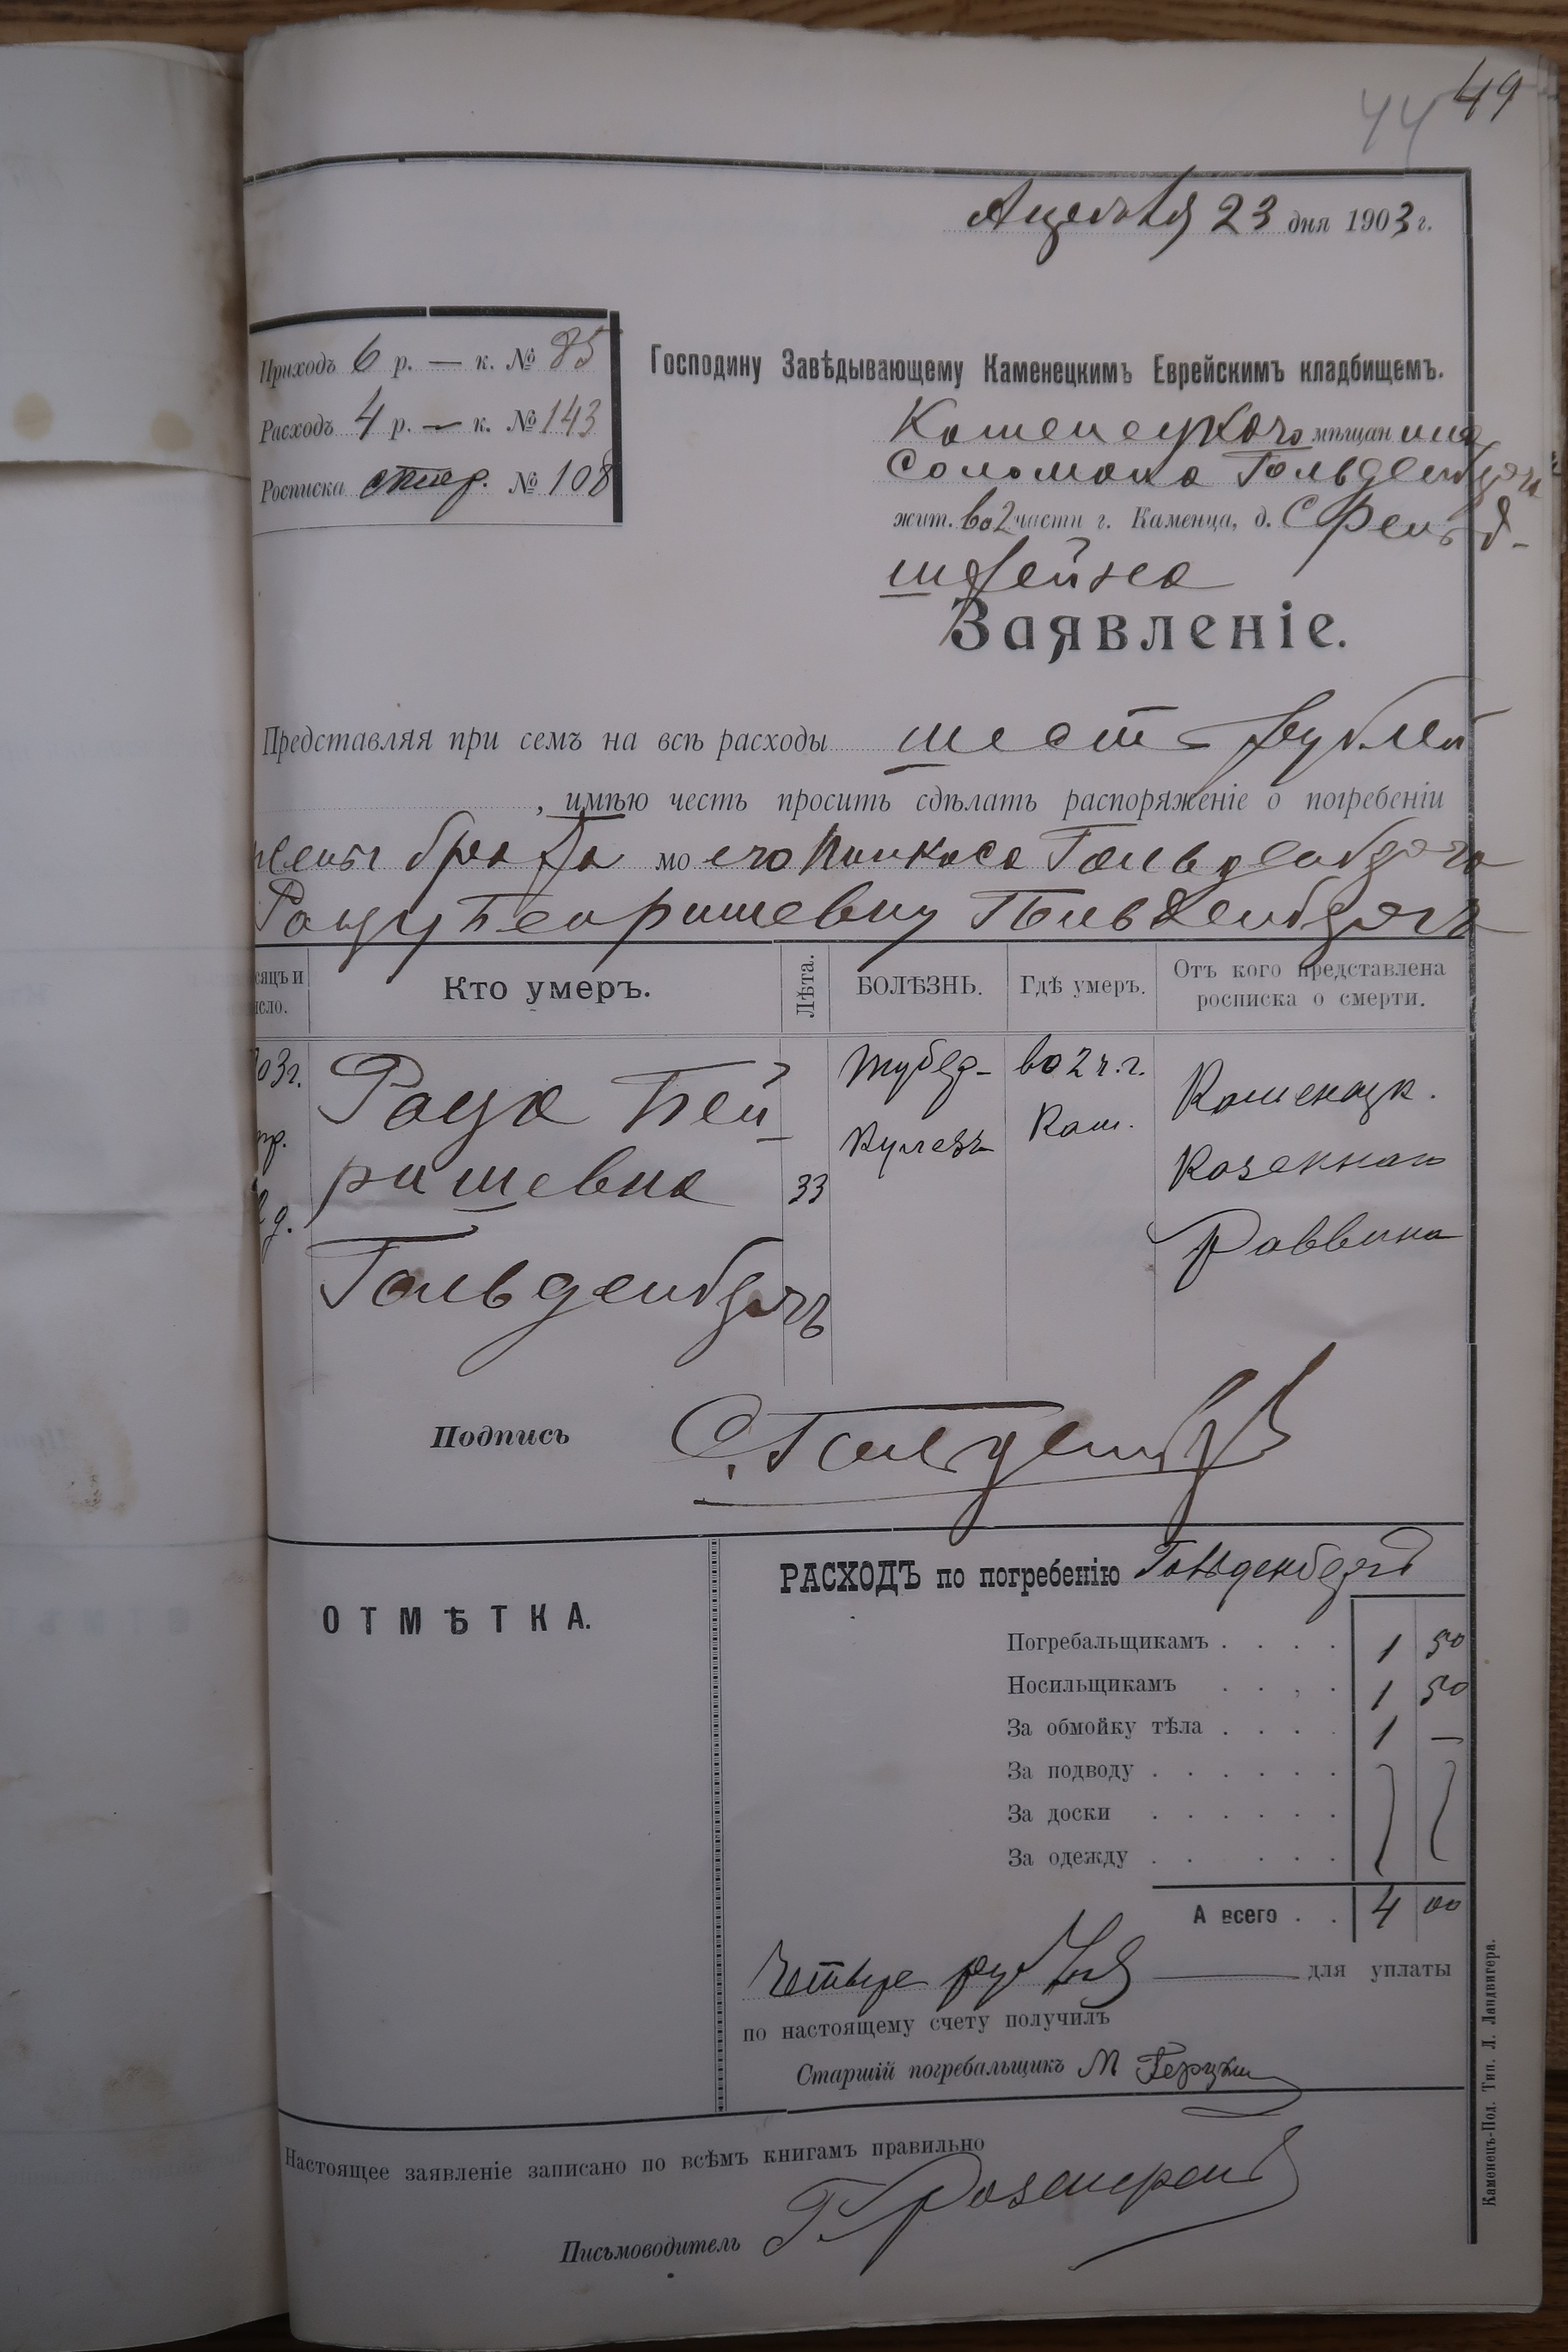 44 49
Апрѣля 23 дня 1903 г.
Приходъ 6 р. — к. № 85
Расходъ 4 р. — к. № 143
Росписка № 108
Господину Завѣдывающему Каменецкимъ Еврейскимъ кладбищемъ.
Каменецкого мѣщанина
Соломона Гольденберга
жит. во 2 части г. Каменца, д.
штейна
Заявленіе.
Представляя при семъ на всѣ расходы шесть рублей
, имѣю честь просить сдѣлать распоряженіе о погребеніи
жены брата моего Пинкаса Гольденберга
Бейришевну Гольденбергъ
сяцъ и
исло.
Кто умеръ.
Лѣта.
БОЛѢЗНЬ.
Гдѣ умеръ.
Отъ кого представлена
росписка о смерти.
03 г.
пр.
д.
Бей-
ришевна
Гольденбергъ
33
Тубер-
кулезъ
во 2 ч. г.
Кам.
Каменецк.
Казеннаго
Раввина
Подпись С. Гольденбергъ
ОТМѢТКА.
РАСХОДЪ по погребенію Гольденбергъ
Погребальщикамъ . . . . 1 50
Носильщикамъ . . . . 1 50
За обмойку тѣла . . . . 1 —
За подводу . . . . . .
За доски . . . . . .
За одежду . . . . . .
А всего . . 4 00
Четыре рубля для уплаты
по настоящему счету получилъ
Старшій погребальщикъ М
Настоящее заявленіе записано по всѣмъ книгамъ правильно
Письмоводитель
Каменецъ-Под. Тип. Л. Ландвигера.